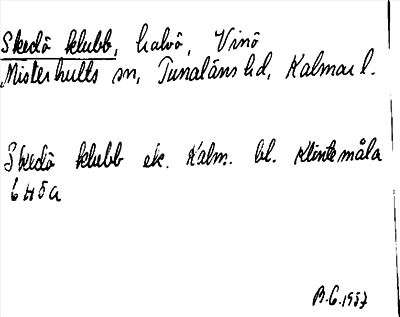 Skedö klubb, halvö, Vinö
Misterhults sn, Tunaläns hd, Kalmar l.
Skedö klubb ek. Kalm. bl. Klintemåla
6H5a
B.G. 1957